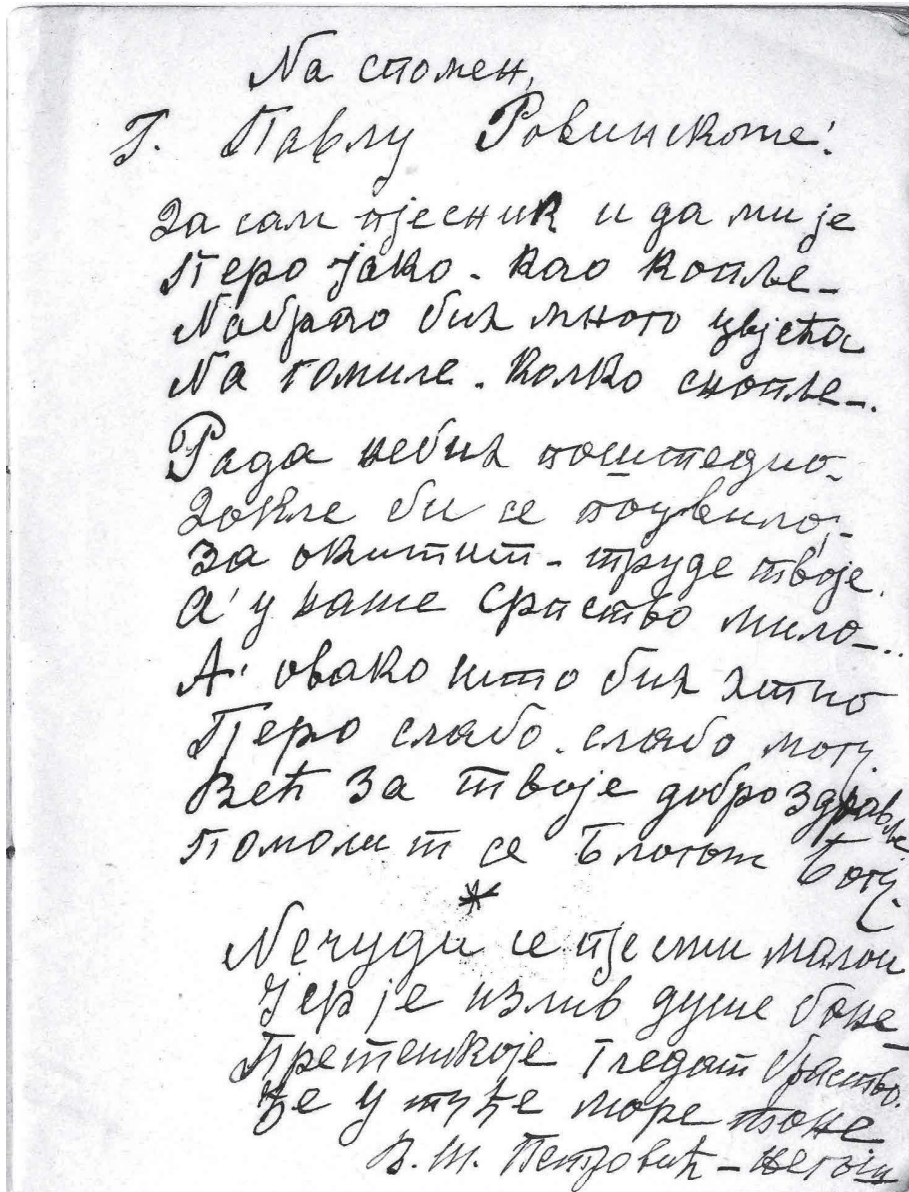 На спомен,
Г. Павлу Ровинскоме!
Да сам пјесник и да ми је
Перо јако - као копље -
Набрао бих много цвјећа
На гомиле - колко снопље -.
Рада небих поштедио -
Докле би се поцвило; -
За окитит - труде твоје.
А' у наше Српство мило -..
А' овако што бих хтио
Перо слабо - слабо могу.
Већ за твоје добро здравље
Помолит се Благом Богу.
*
Нечуди се пјесми малои
Јер је излив душе боне -
Претешкоје гледат братство.
Ђе у туђе море тоне
В. Ш. Петровић - Његош